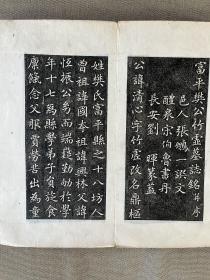 富平樊公竹虛墓誌銘并序
邑人張鵬一譔文
醴泉宋伯魯書丹
長安劉暉篆蓋
公諱清心字竹虛改名鼎
姓樊氏富平縣之十八坊人
曾祖諱國泰祖諱興林父諱
恆振公幼而端謹勤劬於學
年十七為縣學弟子員旋食
廩餼念父服賈勞苦出為童